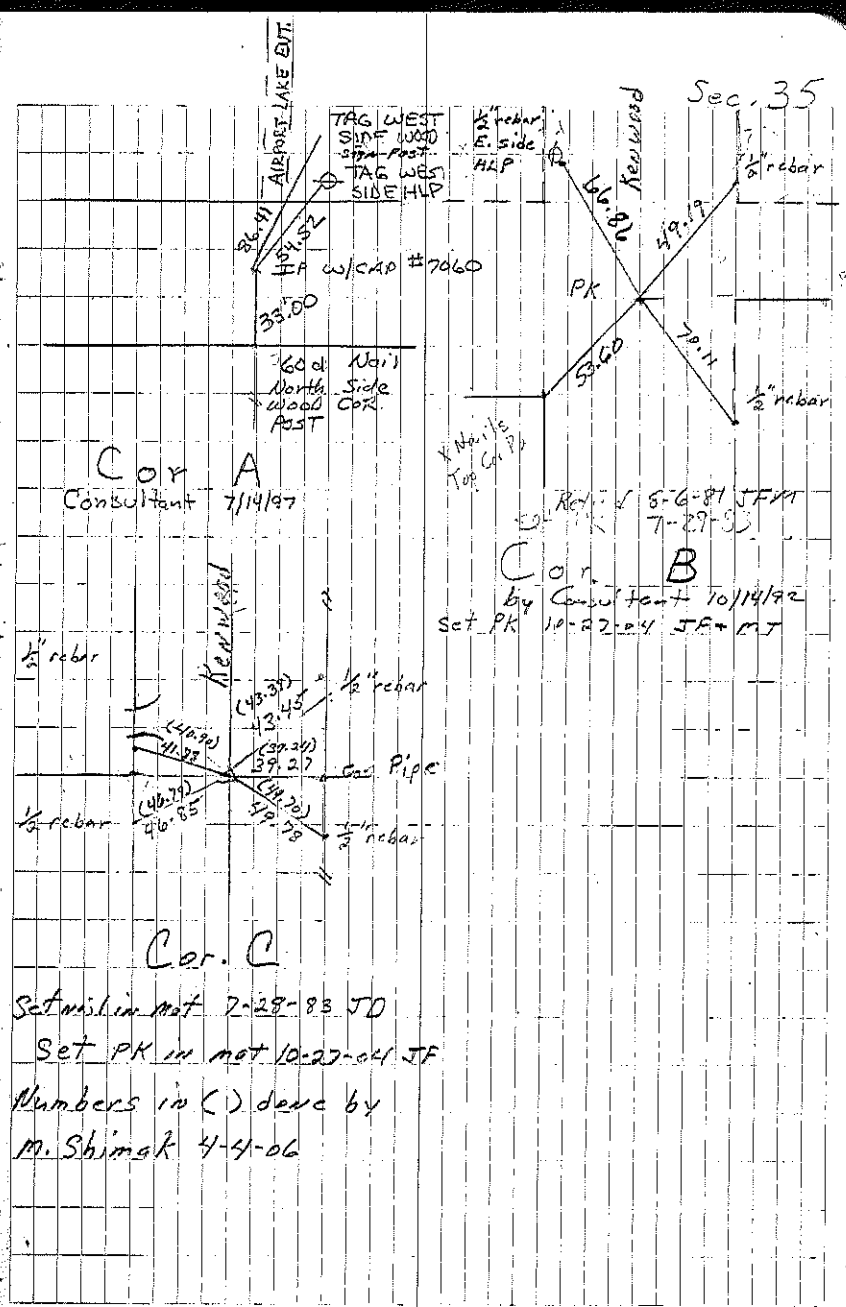 Sec. 35
AIRPORT LAKE EXT.
TAG WEST
SIDE WOOD
SIGN-POST
TAG WEST
SIDE HLP
86.41
54.52
IP W/CAP #7060
33.00
60d Nail
North Side
WOOD COR.
POST
Cor A
Consultant 7/14/97
1/2" rebar
E. side
HLP
Kenwood
1/2" rebar
66.86
49.19
PK
53.60
70.11
1/2" rebar
X Nails
Top
8-6-81 JFM
7-29-83
Cor. B
by Consultant 10/14/92
Set PK 10-27-04 JF + MJ
Kenwood
1/2" rebar
(43.37)
43.45
1/2" rebar
(40.90)
(39.24)
39.27
Gas Pipe
1/2 rebar
(46.79)
46.85
(49.70)
49.78
1/2" rebar
Cor. C
Set nail in mat 7-28-83 JD
Set PK in mat 10-27-04 JF
Numbers in () done by
M. Shimak 4-4-06